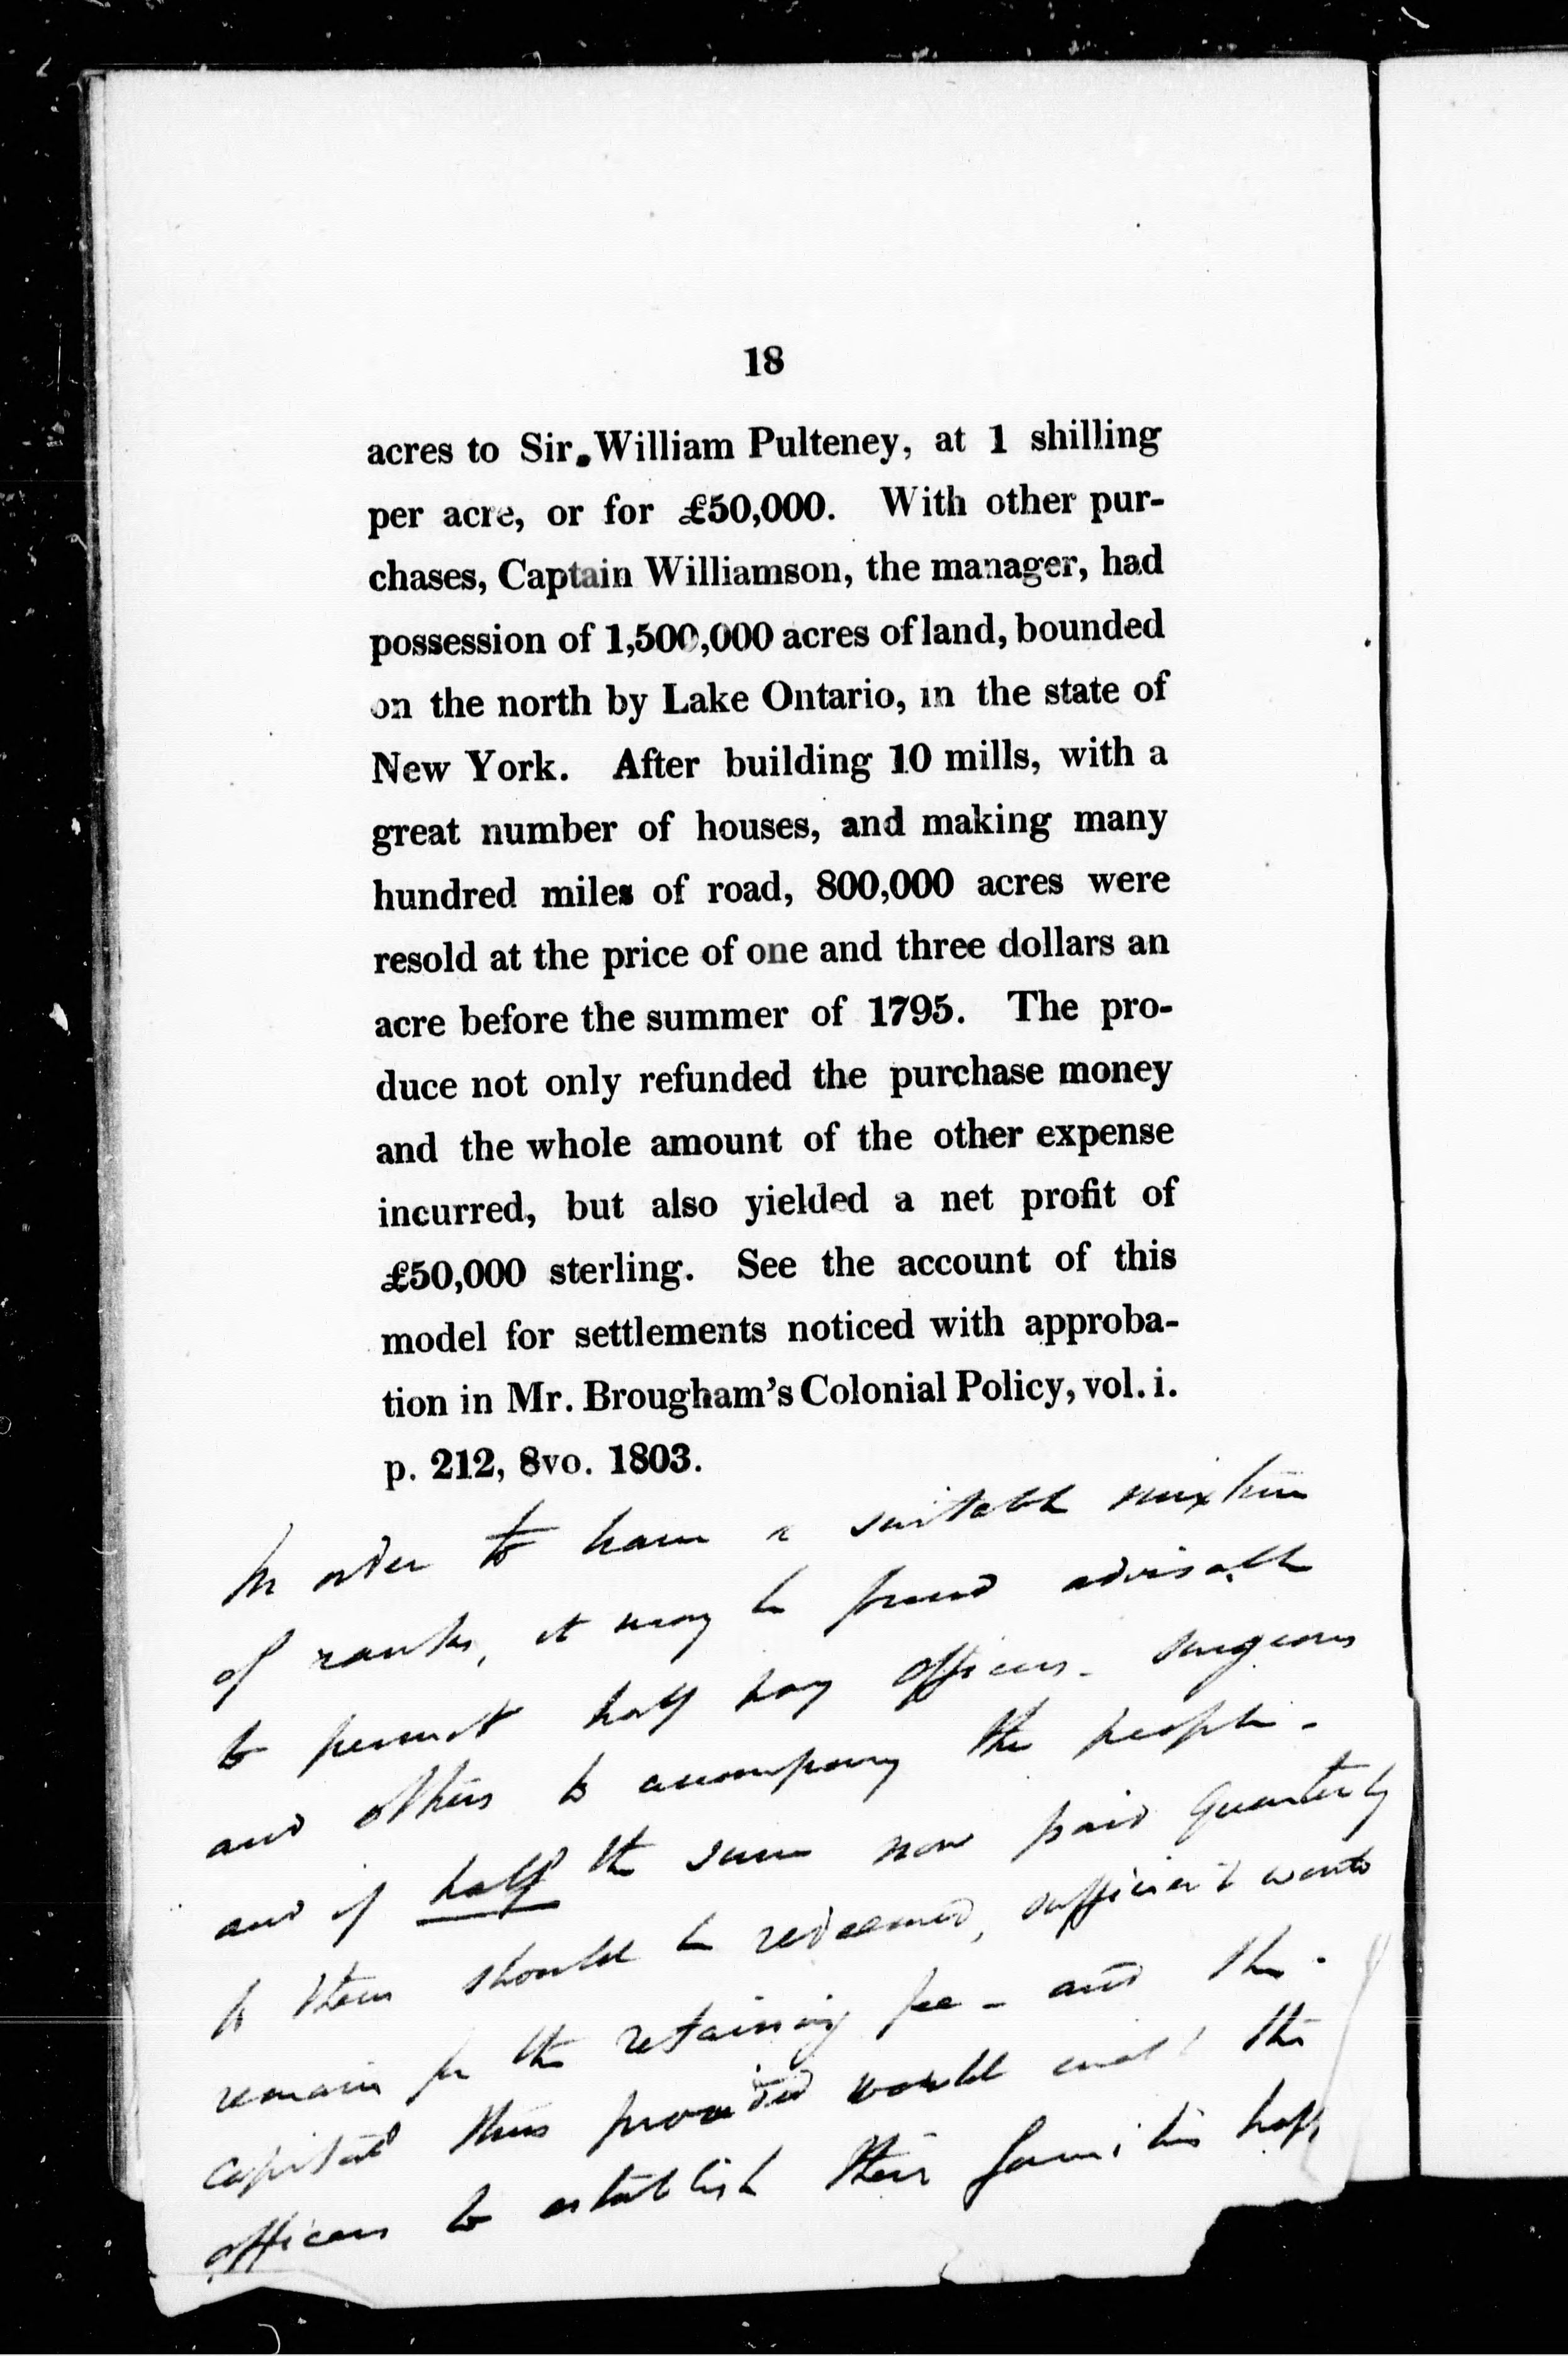 18
acres to Sir William Pulteney, at 1 shilling
per acre, or for £50,000. With other pur-
chases, Captain Williamson, the manager, had
possession of 1,500,000 acres of land, bounded
on the north by Lake Ontario, in the state of
New York. After building 10 mills, with a
great number of houses, and making many
hundred miles of road, 800,000 acres were
resold at the price of one and three dollars an
acre before the summer of 1795. The pro-
duce not only refunded the purchase money
and the whole amount of the other expense
incurred, but also yielded a net profit of
£50,000 sterling. See the account of this
model for settlements noticed with approba-
tion in Mr. Brougham's Colonial Policy, vol. i.
p. 212, 8vo. 1803.
In order to have a suitable mixture
of ranks, it may be found advisable
to permit half pay officers - surgeons
and others to accompany the people -
and if half the sum now paid quarterly
to them should be redeemed, sufficient would
remain for the retaining fee - and the -
capital thus provided would enable the
officers to establish their families